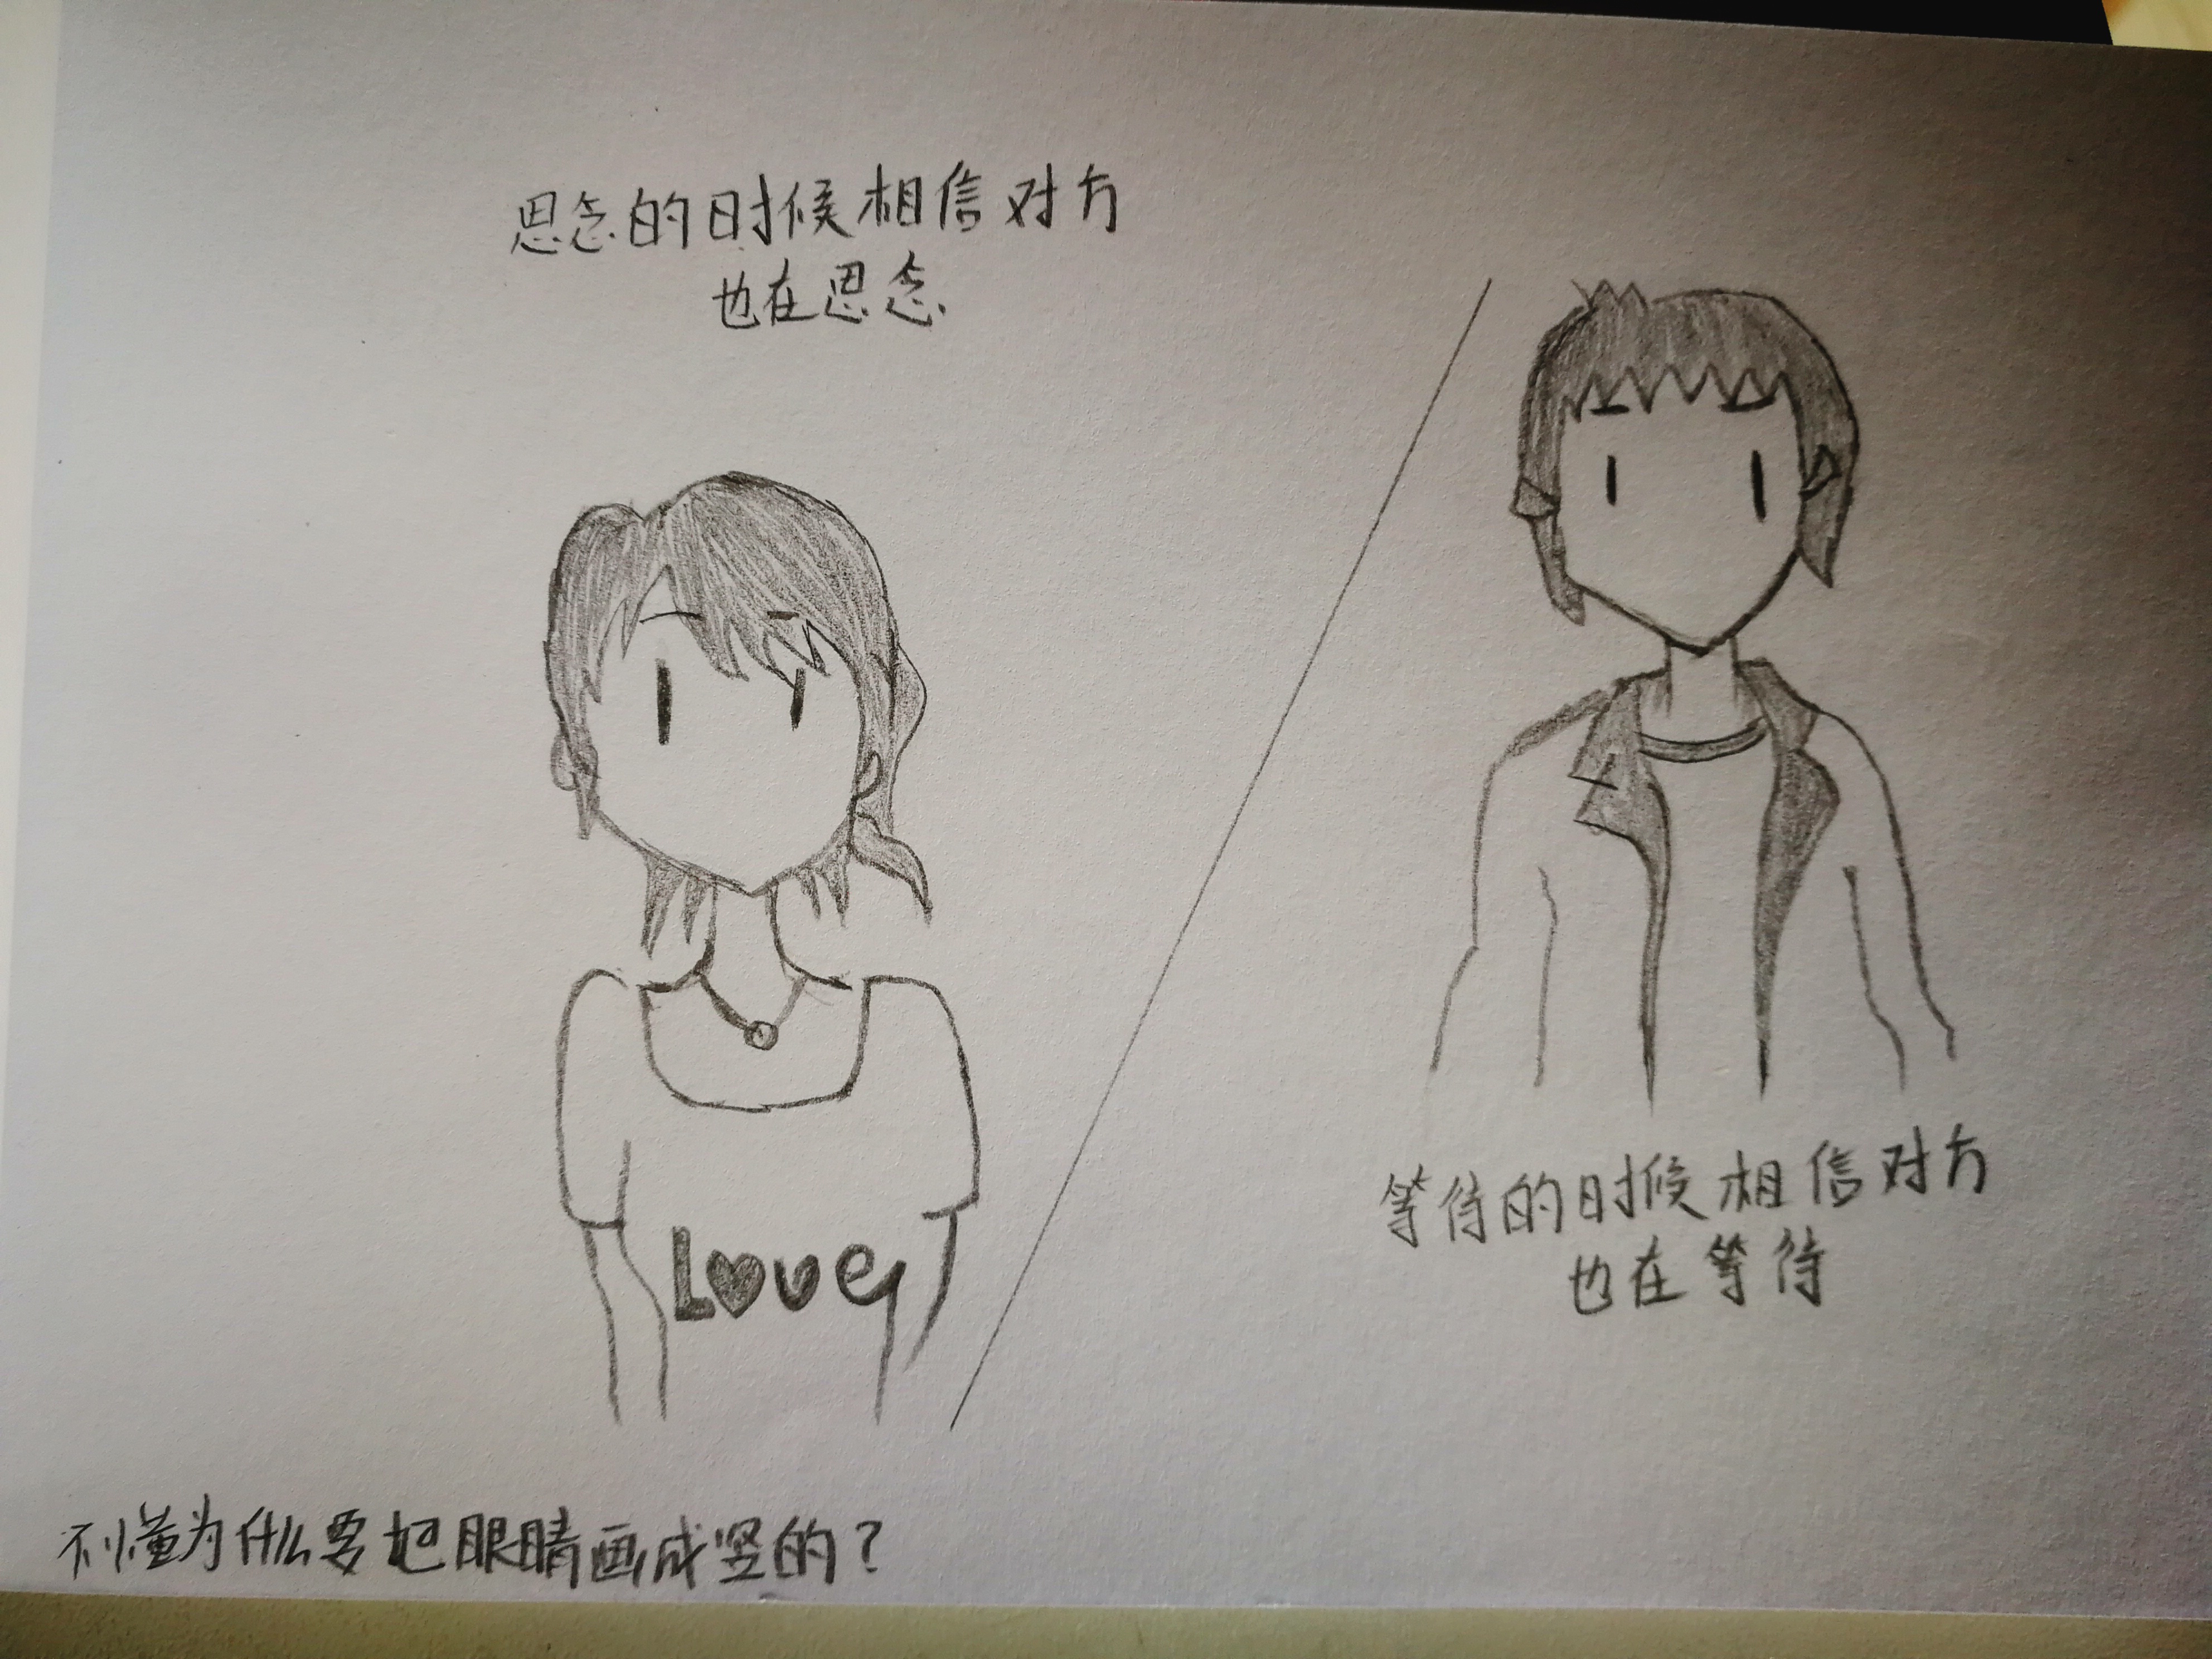 思念的时候相信对方
也在思念
Love
等待的时候相信对方
也在等待
不懂为什么要把眼睛画成竖的?